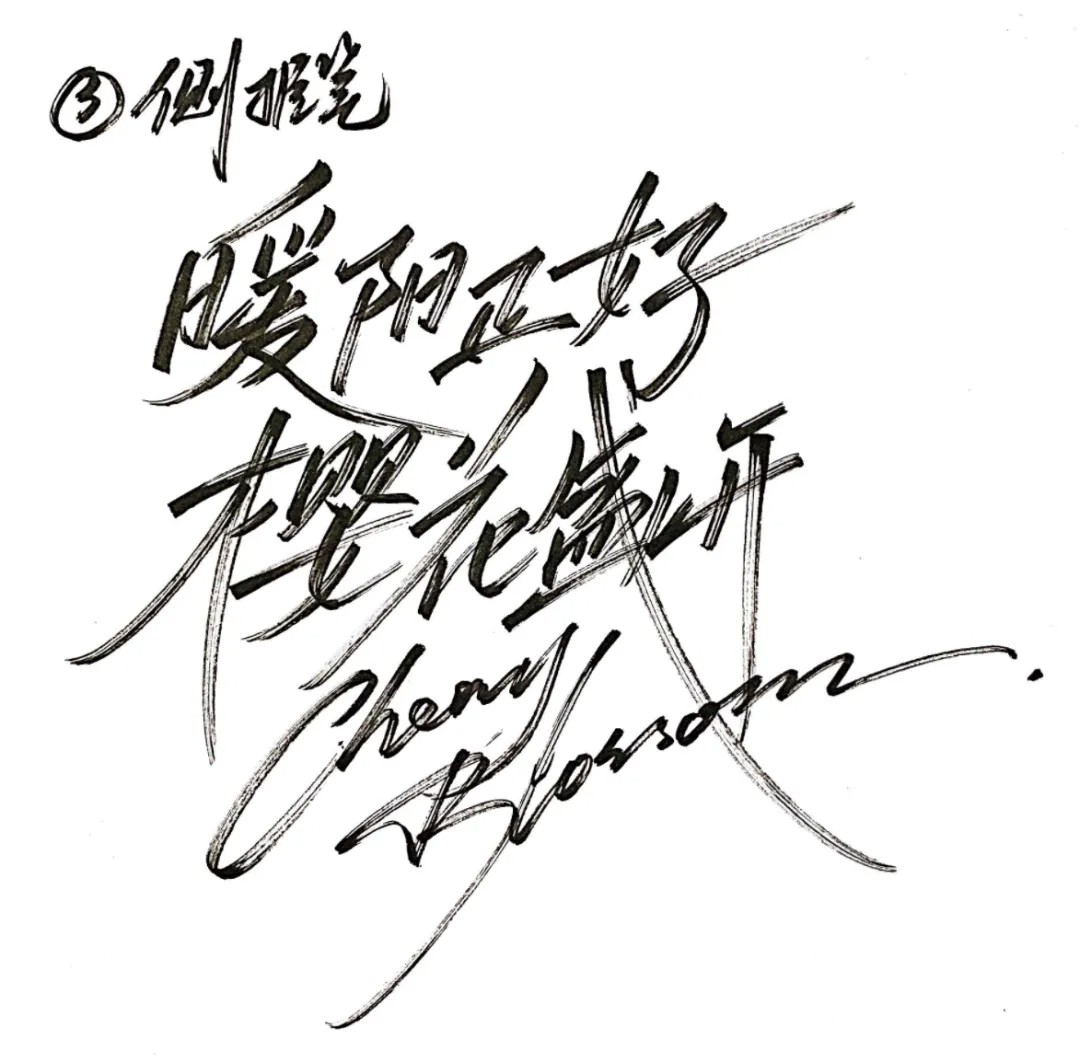 ③侧推笔
暖阳正好
樱花盛开
Cherry
Blossom.